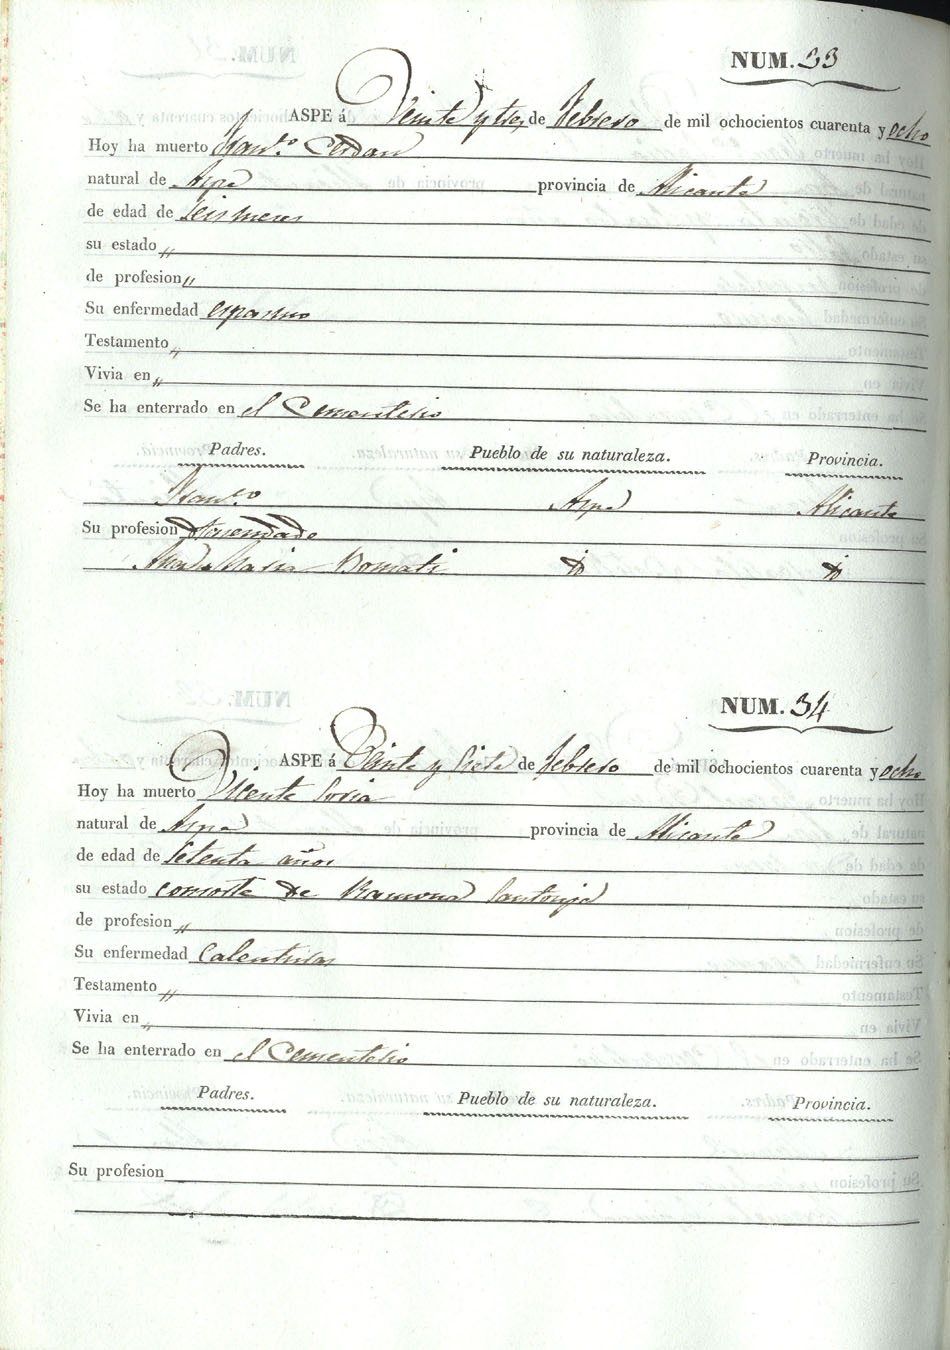 NUM. 33
ASPE á Veinte y tres de Febrero de mil ochocientos cuarenta y ocho
Hoy ha muerto Fran.co Cerdan
natural de Aspe provincia de Alicante
de edad de seis meses
su estado "
de profesion "
Su enfermedad espasmo
Testamento "
Vivia en "
Se ha enterrado en el Cementerio
Padres. Pueblo de su naturaleza. Provincia.
Fran.co Aspe Alicante
Su profesion
Maria
NUM. 34
ASPE á Veinte y siete de Febrero de mil ochocientos cuarenta y ocho
Hoy ha muerto Vicente Soria
natural de Aspe provincia de Alicante
de edad de setenta años
su estado consorte de Ramona Santonja
de profesion "
Su enfermedad Calenturas
Testamento "
Vivia en "
Se ha enterrado en el Cementerio
Padres. Pueblo de su naturaleza. Provincia.
Su profesion